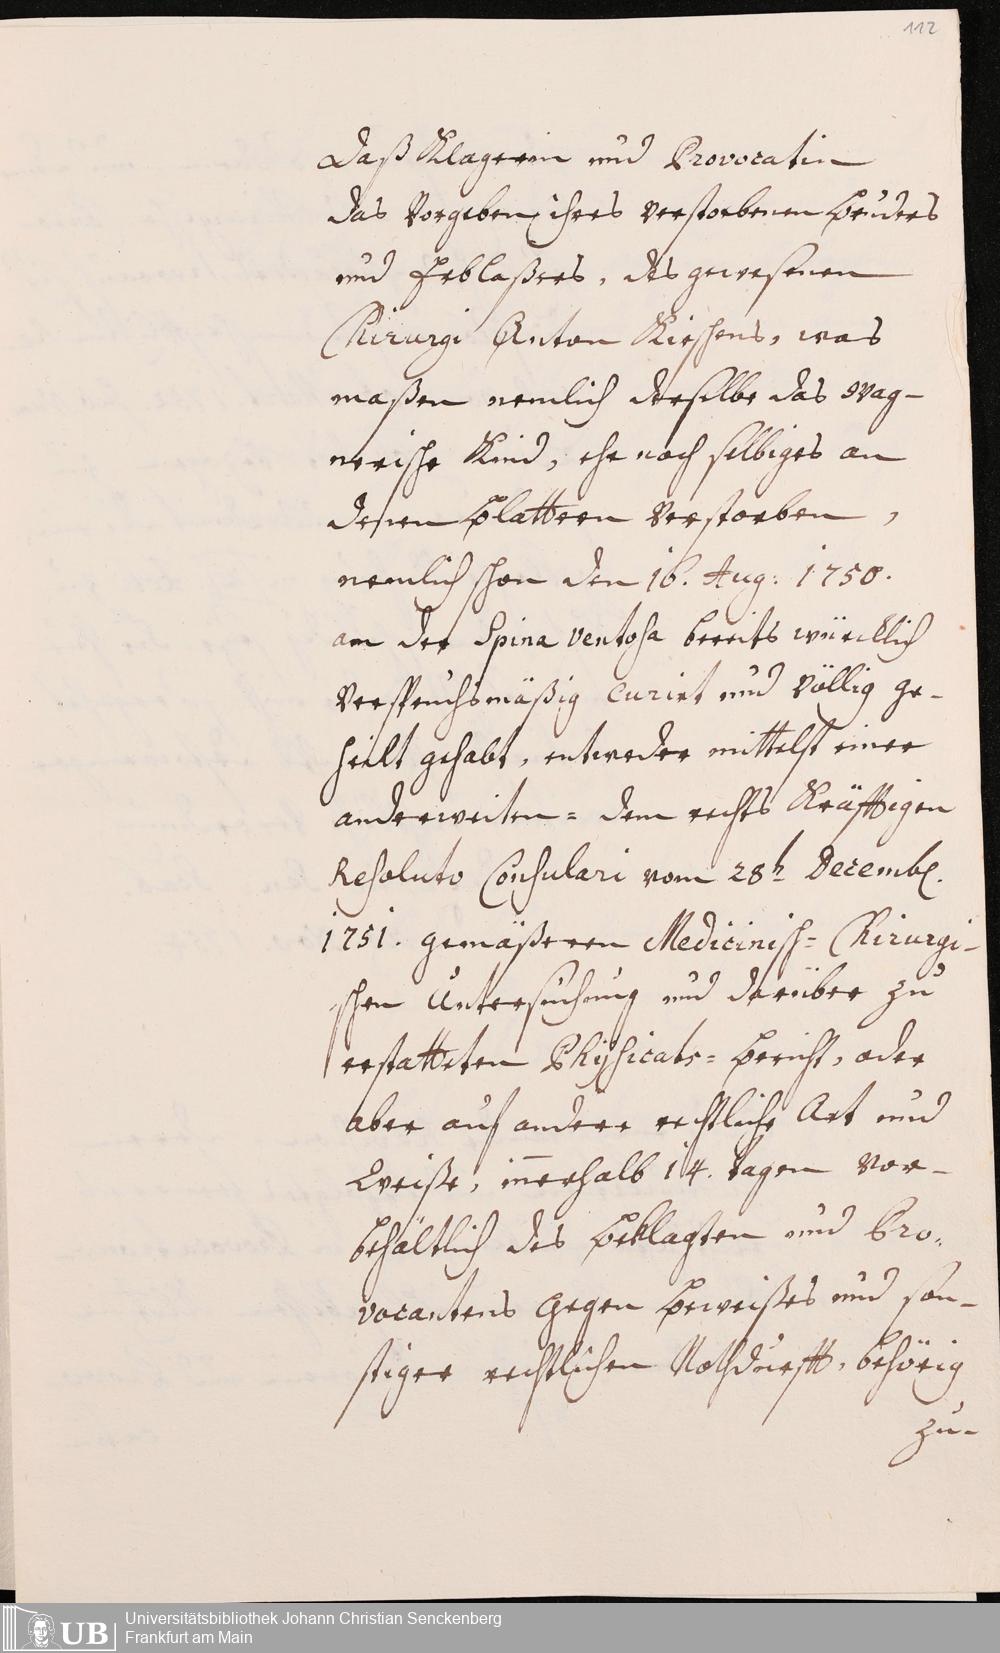 112
Daß Klagerin und Provocatin
das Vorgeben ihres verstorbenen Bruders
und Erblaßers, des gewesenen
Chirurgi Anton Kirschens, was
maßen nemlich derselbe das Wag-
nerische Kind, ehe noch selbiges an
denen Blattern verstorben,
nemlich schon den 16. Aug: 1750.
an der Spina ventosa bereits würcklich
verspruchsmäßig curirt und völlig ge-
heilt gehabt, entweder mittelst einer
anderweiten= dem rechts kräfftigen
Resoluto Consulari vom 28ten Decembr.
1751. gemäßeren Medicinisch= Chirurgi-
schen Untersuchung und darüber zu
erstatteten Physicats= Bericht, oder
aber auf andere rechtliche Art und
Weiße, innerhalb 14. tagen vor-
behältlich des Beklagten und Pro-
vocantens Gegen Beweißes und son-
stiger rechtlichen Nothdurfft, behörig
zu-
UB
Universitätsbibliothek Johann Christian Senckenberg
Frankfurt am Main